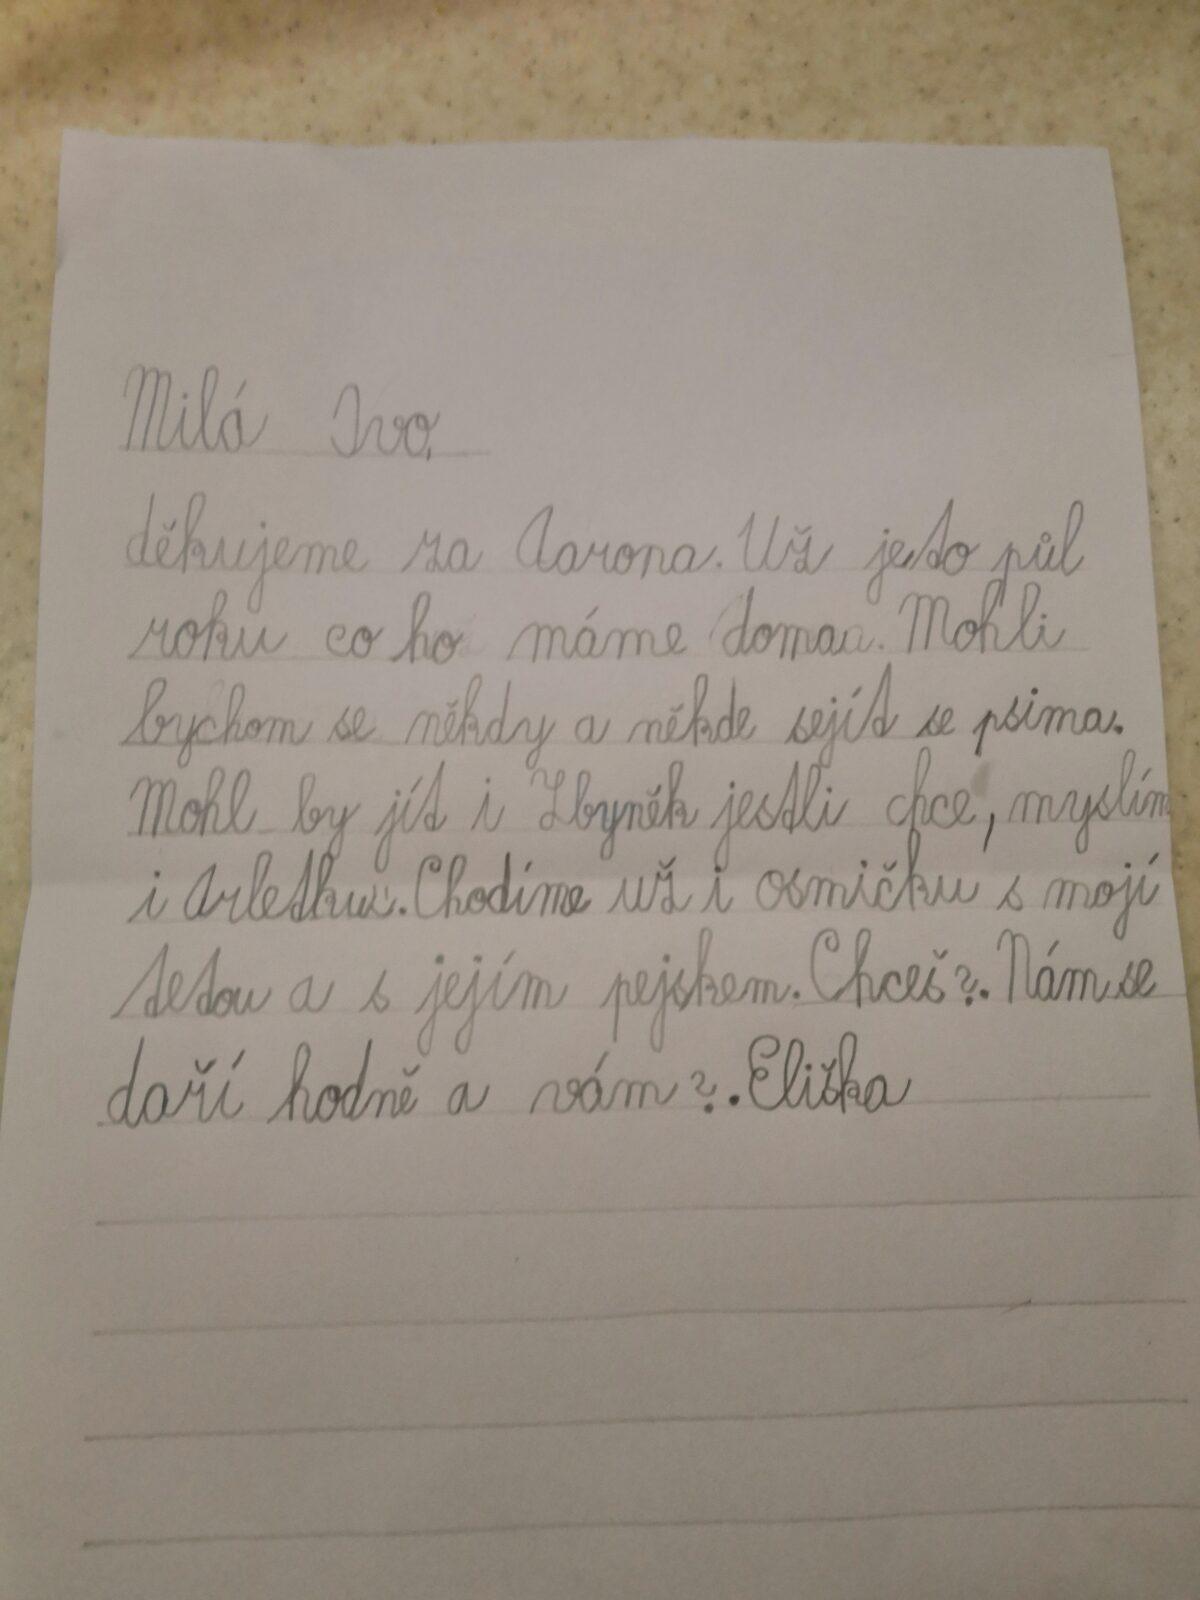 Milá Ivo,
děkujeme za Aarona. Už je to půl
roku co ho máme doma. Mohli
bychom se někdy a někde sejít se psima.
Mohl by jít i Zbyněk jestli chce, myslím
i Arletku. Chodíme už i osmičku s mojí
tetou a s jejím pejskem. Chceš?. Nám se
daří hodně a vám?. Eliška